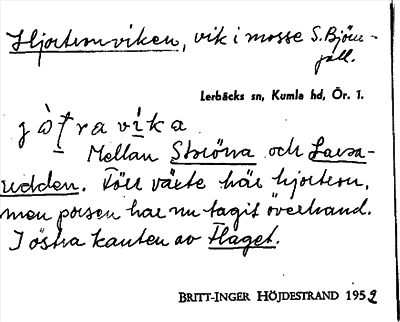 Hjortronviken, vik i mosse S. Björn-
fall.
Lerbäcks sn, Kumla hd, Ör. 1.
Mellan Ströäna och Lassa-
udden. Förr växte här hjortron,
men porsen har nu tagit överhand.
I östra kanten av Flaget.
BRITT-INGER HÖJDESTRAND 1952